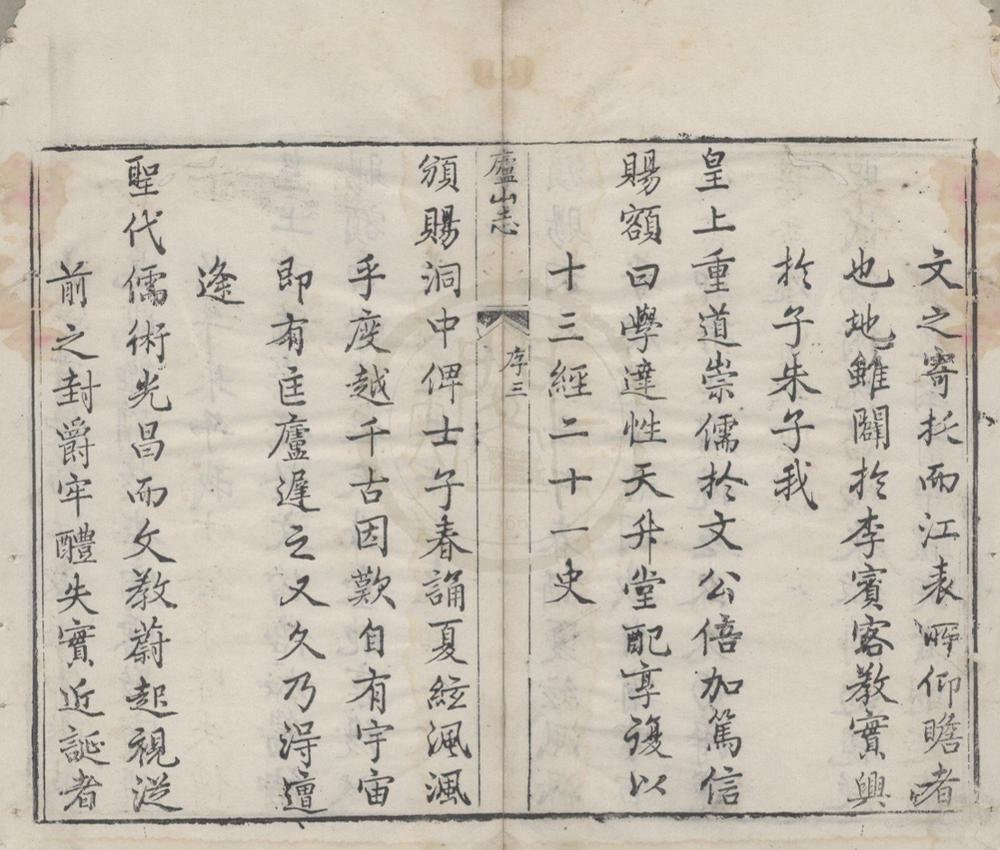 文之寄托而江表所仰瞻者
也地雖闢於李賓客教實興
於子朱子我
皇上重道崇儒於文公倍加篤信
賜額曰學達性天升堂配享復以
十三經二十一史
廬山志
序三
頒賜洞中俾士子春誦夏絃渢渢
乎度越千古因歎自有宇宙
即有匡廬遲之又久乃得遭
逢
聖代儒術光昌而文教蔚起視從
前之封爵牢醴失實近誕者